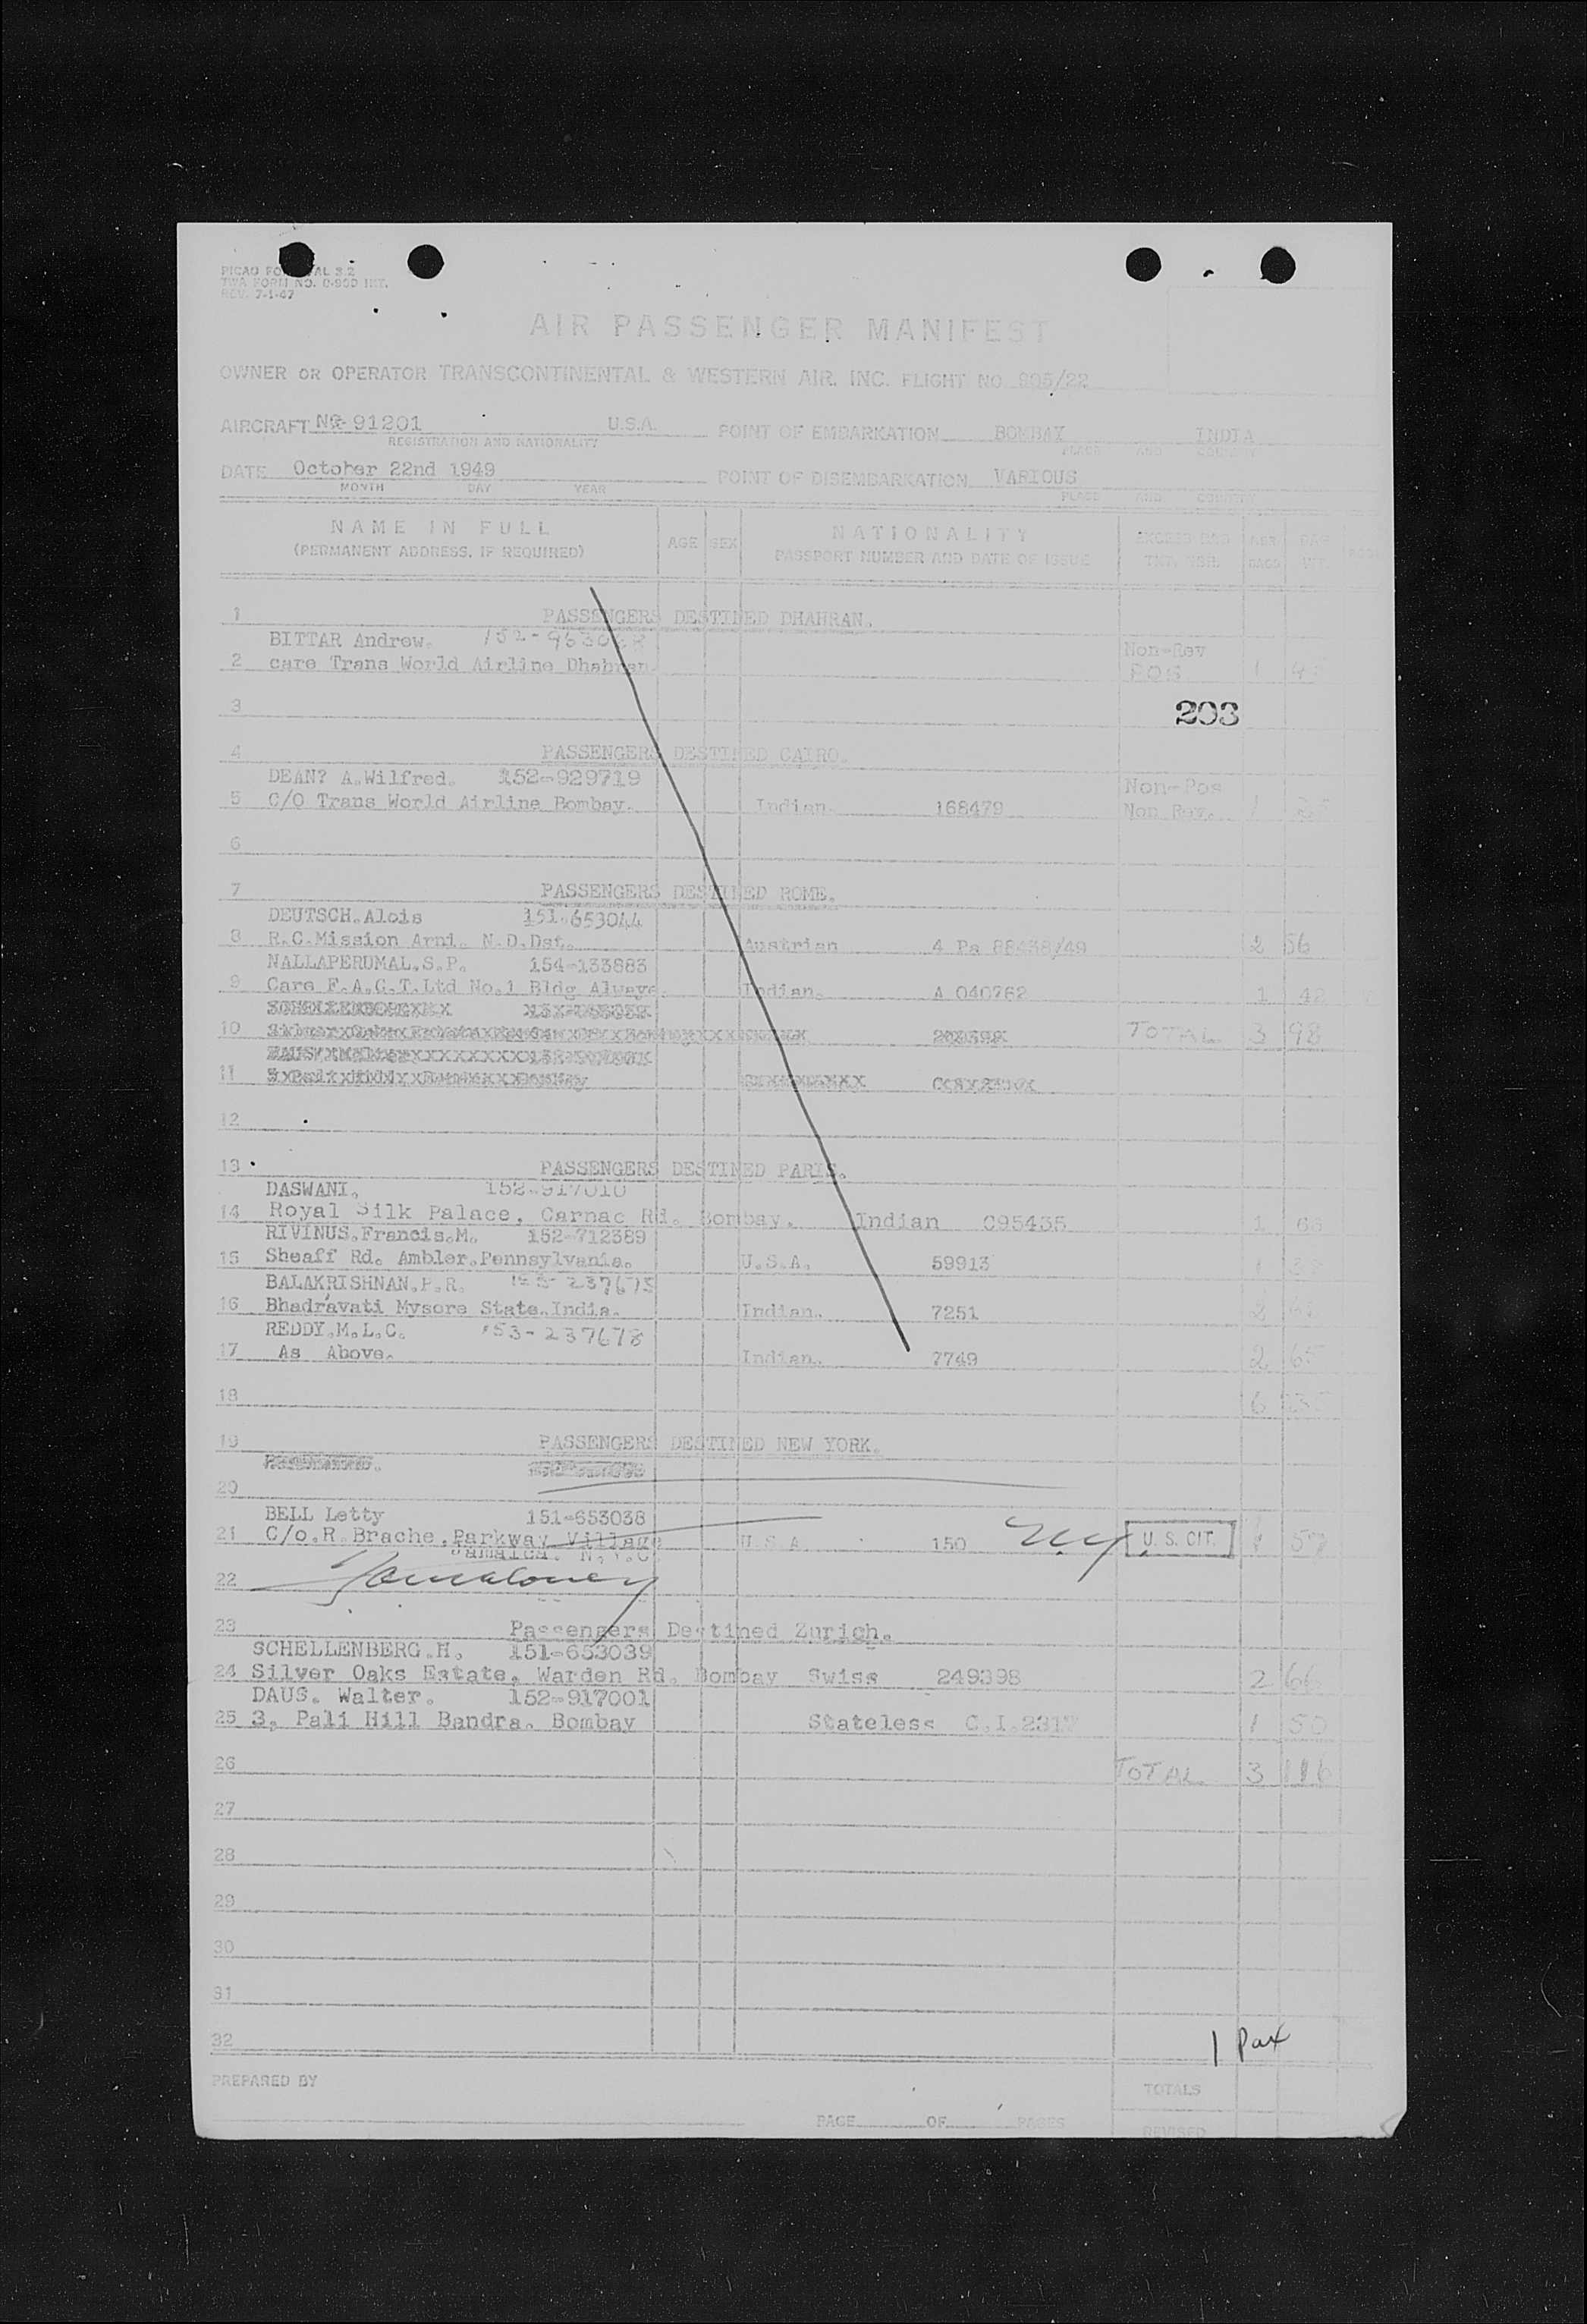 PICAO FO AL 3.2
TWA FORM NO. 0-950 INT.
REV. 7-1-47
AIR PASSENGER MANIFEST
OWNER OR OPERATOR TRANSCONTINENTAL & WESTERN AIR. INC. FLIGHT NO 905/22
AIRCRAFT 91201 U.S.A. POINT OF EMBARKATION BOMBAY INDIA
REGISTRATION AND NATIONALITY PLACE AND COUNTRY
DATE October 22nd 1949 POINT OF DISEMBARKATION VARIOUS
MONTH DAY YEAR PLACE AND COUNTRY
NAME IN FULL AGE SEX NATIONALITY EXCESS BAG
(PERMANENT ADDRESS, IF REQUIRED) PASSPORT NUMBER AND DATE OF ISSUE TKT. NBR. BAGS WT.
1 PASSENGERS DESTINED DHAHRAN.
BITTAR Andrew. Non-Rev
2 care Trans World Airline Dhahran. POS 1
3 203
4 PASSENGERS DESTINED CAIRO.
DEAN? A.Wilfred. 152-929719 Non-Pos
5 C/O Trans World Airline Bombay. Indian. 168479 Non Rev. 1
6
7 PASSENGERS DESTINED ROME.
DEUTSCH.Alois 151-653044
8 R.C.Mission Arni. N.D.Dst. Austrian 4 Pa 88438/49 2 56
NALLAPERUMAL.S.P. 154-133683
9 Care F.A.C.T.Ltd No.1 Bldg Alwaye. Indian. A 040762 1 42
10 TOTAL 3 98
11
12
13 PASSENGERS DESTINED PARIS.
DASWANI. 152-917010
14 Royal Silk Palace, Carnac Rd. Bombay. Indian C95435 1
RIVINUS.Francis.M. 152-712389
15 Sheaff Rd. Ambler.Pennsylvania. U.S.A. 59913 1
BALAKRISHNAN.P.R. 153-237675
16 Bhadravati Mysore State.India. Indian. 7251 2
REDDY.M.L.C. 153-237678
17 As Above. Indian. 7749 2 65
18 6
19 PASSENGERS DESTINED NEW YORK.
20
BELL Letty 151-653038
21 C/o.R.Brache.Parkway Village U.S.A. 150 U. S. CIT. 57
Jamaica. N.Y.C.
22
23 Passengers Destined Zurich.
SCHELLENBERG.H. 151-653039
24 Silver Oaks Estate, Warden Rd. Bombay Swiss 249398 2 66
DAUS. Walter. 152-917001
25 3, Pali Hill Bandra. Bombay Stateless C.I.2317 1 50
26 TOTAL 3 116
27
28
29
30
31
32 1 Pax
PREPARED BY TOTALS
PAGE OF PAGES REVISED